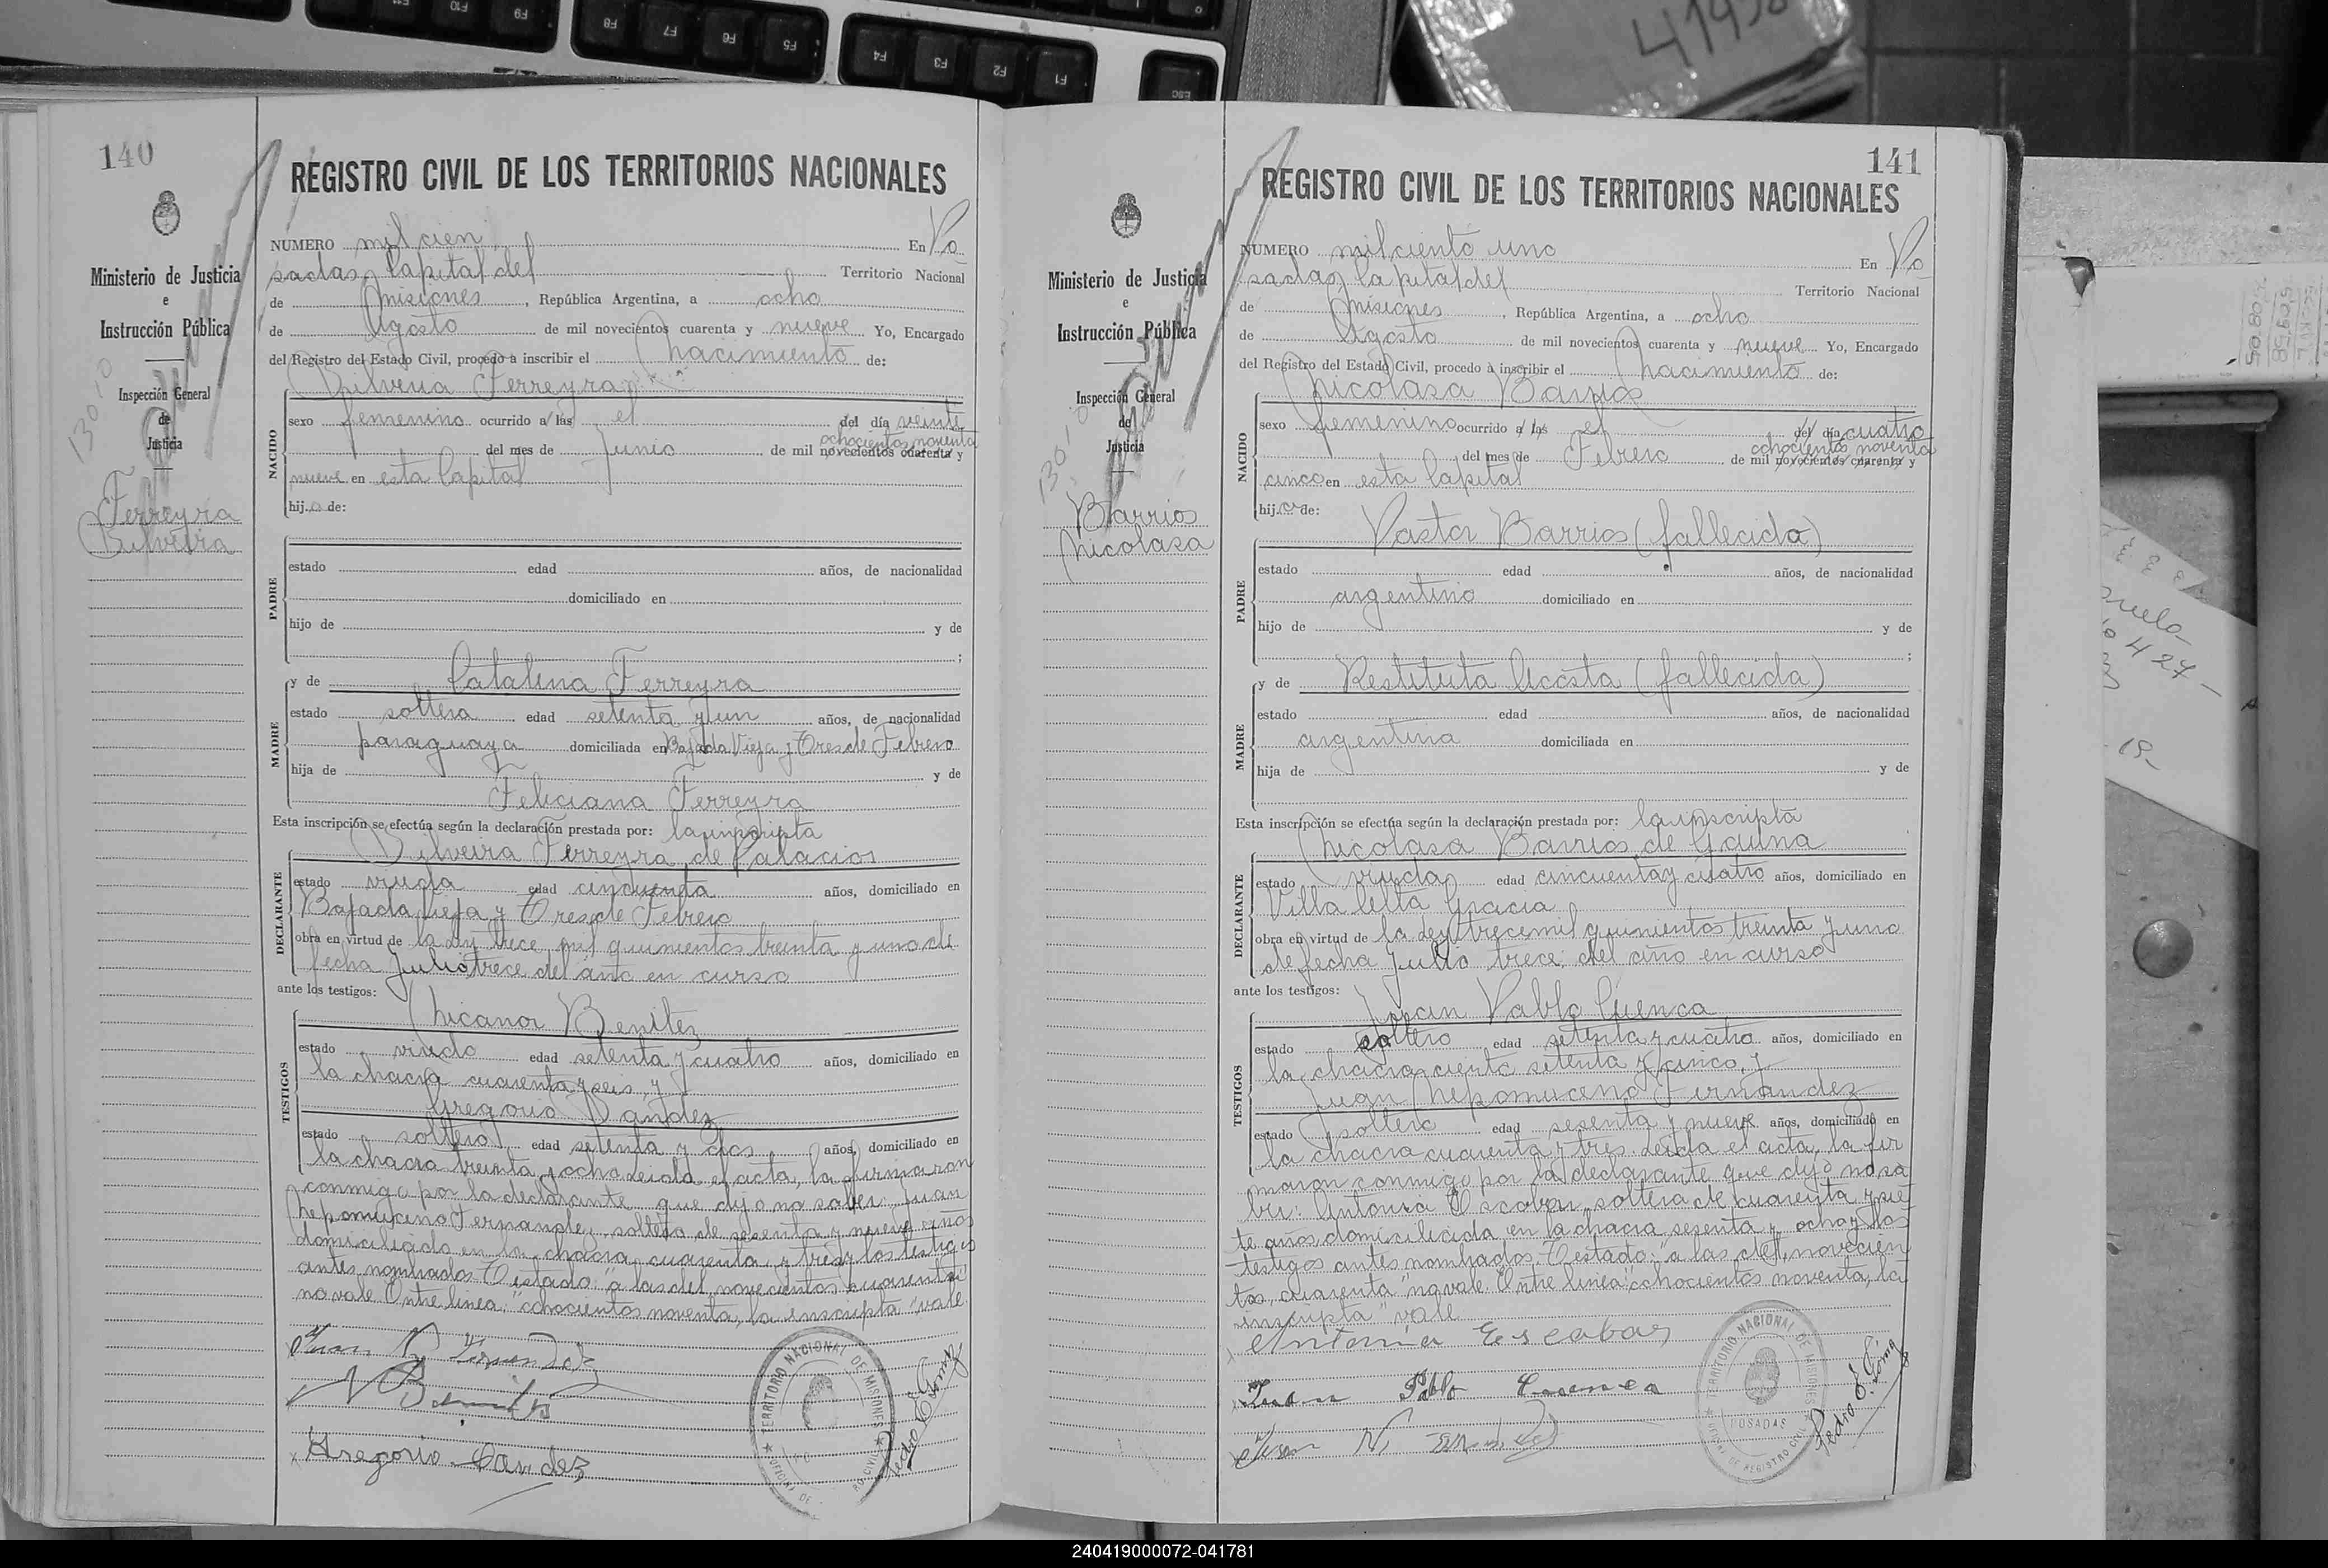 41958
F11 F10 F9 F8 F7 F6 F5 F4 F3 F2 F1 ESC
140
REGISTRO CIVIL DE LOS TERRITORIOS NACIONALES
Ministerio de Justicia
e
Instrucción Pública
Inspección General
de
Justicia
13010
Ferreyra
Silveria
NUMERO mil cien En Po
sadas, Capital del Territorio Nacional
de Misiones, República Argentina, a ocho
de Agosto de mil novecientos cuarenta y nueve Yo, Encargado
del Registro del Estado Civil, procedo a inscribir el Nacimiento de:
Silveria Ferreyra
NACIDO
sexo femenino ocurrido a las el del día veinte
ochocientos noventa
del mes de Junio de mil novecientos cuarenta y
nueve en esta Capital
hija de:
PADRE
estado edad años, de nacionalidad
domiciliado en
hijo de y de
;
MADRE
y de Catalina Ferreyra
estado soltera edad setenta y un años, de nacionalidad
paraguaya domiciliada en Bajada Vieja y Tres de Febrero
hija de y de
Feliciana Ferreyra
Esta inscripción se efectúa según la declaración prestada por: la inscripta
DECLARANTE
Silveira Ferreyra de Palacios
estado viuda edad cincuenta años, domiciliado en
Bajada Vieja y Tres de Febrero
obra en virtud de la Ley trece mil quinientos treinta y uno de
fecha Julio trece del año en curso
ante los testigos:
TESTIGOS
Nicanor Benitez
estado viudo edad setenta y cuatro años, domiciliado en
la chacra cuarenta y seis, y
Gregorio Sandez
estado soltero edad setenta y dos años, domiciliado en
la chacra treinta y ocho. Leida el acta, la firmaron
conmigo por la declarante que dijo no saber: Juan
Nepomuceno Fernandez, soltero de sesenta y nueve años
domiciliado en la chacra cuarenta y tres y los testigos
antes nombrados. Testado: "a las del, novecientos cuarenta"
no vale. Entre linea: "ochocientos noventa, la inscripta" vale.
Juan N. Fernandez
N Benitez
Gregorio Sandez
TERRITORIO NACIONAL DE MISIONES
Pedro E. Goma
141
REGISTRO CIVIL DE LOS TERRITORIOS NACIONALES
Ministerio de Justicia
e
Instrucción Pública
Inspección General
de
Justicia
13010
Barrios
Nicolasa
NUMERO mil ciento uno En Po
sadas, Capital del Territorio Nacional
de Misiones, República Argentina, a ocho
de Agosto de mil novecientos cuarenta y nueve Yo, Encargado
del Registro del Estado Civil, procedo a inscribir el Nacimiento de:
Nicolasa Barrios
NACIDO
sexo femenino ocurrido a las el del día cuatro
ochocientos noventa
del mes de Febrero de mil novecientos cuarenta y
cinco en esta Capital
hija de:
PADRE
Pastor Barrios (fallecido)
estado edad años, de nacionalidad
argentino domiciliado en
hijo de y de
;
MADRE
y de Restituta Acosta (fallecida)
estado edad años, de nacionalidad
argentina domiciliada en
hija de y de
Esta inscripción se efectúa según la declaración prestada por: la inscripta
DECLARANTE
Nicolasa Barrios de Gauna
estado viuda edad cincuenta y cuatro años, domiciliado en
Villa Alta Gracia
obra en virtud de la Ley trece mil quinientos treinta y uno
de fecha Julio trece del año en curso
ante los testigos:
TESTIGOS
Juan Pablo Cuenca
estado soltero edad setenta y cuatro años, domiciliado en
la chacra ciento setenta y cinco, y
Juan Nepomuceno Fernandez
estado soltero edad sesenta y nueve años, domiciliado en
la chacra cuarenta y tres. Leida el acta, la fir
maron conmigo por la declarante que dijo no sa
ber: Antonia Escobar, soltera de cuarenta y sie
te años domiciliada en la chacra sesenta y ocho y los
testigos antes nombrados. Testado: "a las del, novecien
tos, cuarenta" no vale. Entre linea: "ochocientos noventa, la
inscripta" vale.
Antonia Escobar
Juan Pablo Cuenca
Juan N. Fernandez
TERRITORIO NACIONAL DE MISIONES
POSADAS
OFICINA DE REGISTRO CIVIL
Pedro E. Goma
240419000072-041781